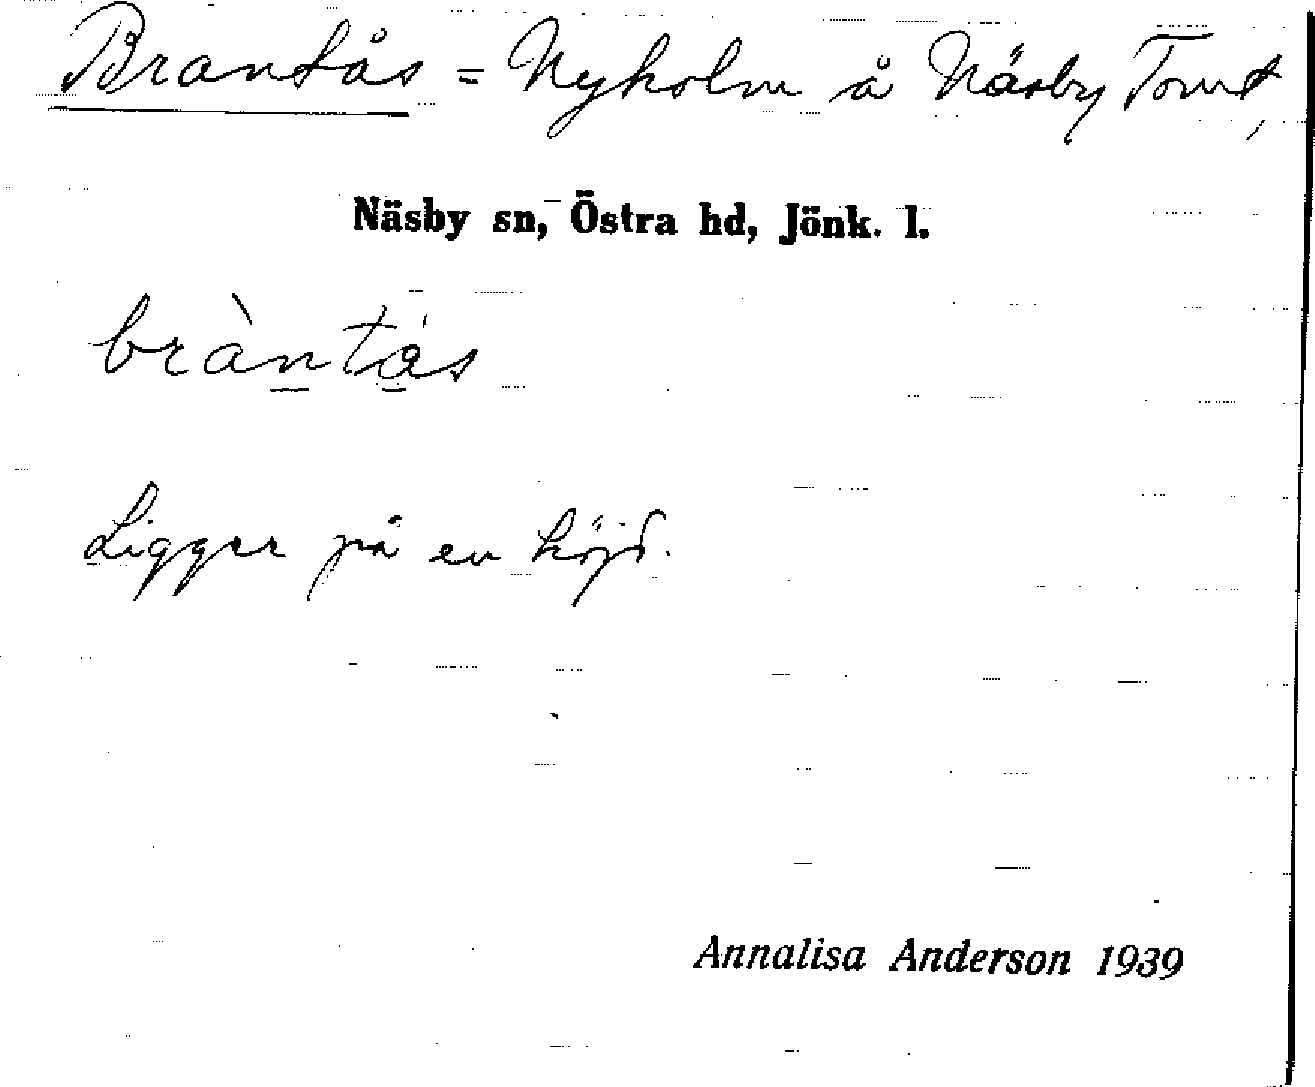 Brantås = Nyholm å Näsby Tomt,
Näsby sn, Östra hd, Jönk. l.
bràntás
Ligger på en höjd.
Annalisa Anderson 1939